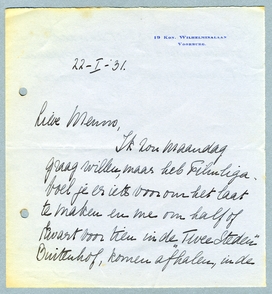 19 Kon. Wilhelminalaan
Voorburg.
22-I-'31.
Lieve Menno,
Ik zou Maandag
graag willen, maar heb Filmliga.
Voel je er iets voor om het laat
te maken en me om half of
kwart voor tien in de „Twee Steden”
Buitenhof, komen afhalen, in de